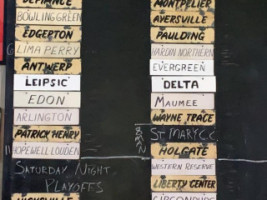 DEFIANCE
BOWLING GREEN
EDGERTON
LIMA PERRY
ANTWERP
LEIPSIC
EDON
ARLINGTON
PATRICK HENRY
HOPEWELL LOUDEN
SATURDAY NIGHT
PLAYOFFS
HICKSVILLE
MONTPELIER
AYERSVILLE
PAULDING
HARDIN NORTHERN
EVERGREEN
DELTA
MAUMEE
WAYNE TRACE
ST MARY C.C.
HOLGATE
WESTERN RESERVE
LIBERTY CENTER
GIBSONBURG